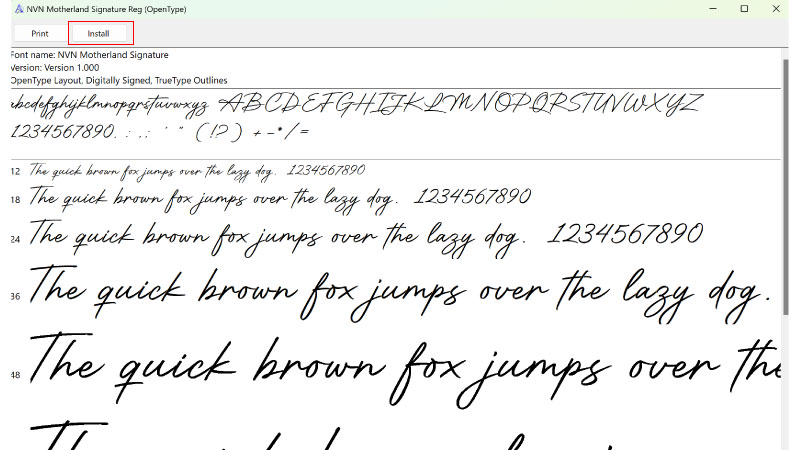 NVN Motherland Signature Reg (OpenType)
Print Install
Font name: NVN Motherland Signature
Version: Version 1.000
OpenType Layout, Digitally Signed, TrueType Outlines
abcdefghijklmnopqrstuvwxyz ABCDEFGHIJKLMNOPQRSTUVWXYZ
1234567890. : . ; ' " ( !? ) + - * / =
12 The quick brown fox jumps over the lazy dog. 1234567890
18 The quick brown fox jumps over the lazy dog. 1234567890
24 The quick brown fox jumps over the lazy dog. 1234567890
36 The quick brown fox jumps over the lazy dog.
48 The quick brown fox jumps over the